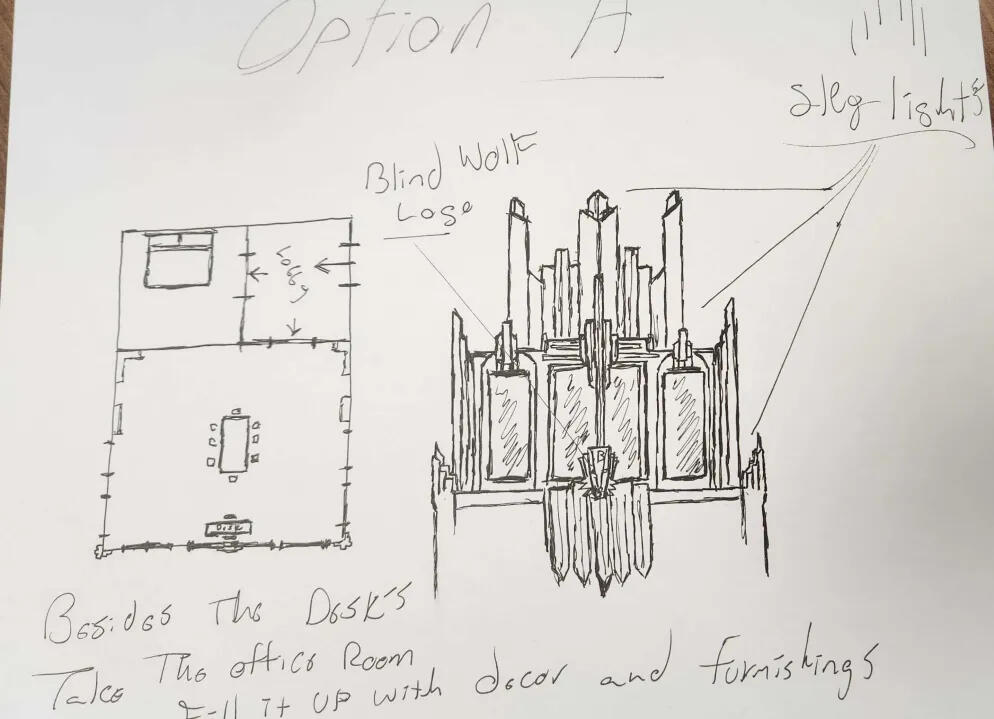 Option A
Sky-lights
Blind Wolf
Logo
Lobby
B
Desk
Besides The Desks
Take The office Room
Fill it up with decor and furnishings